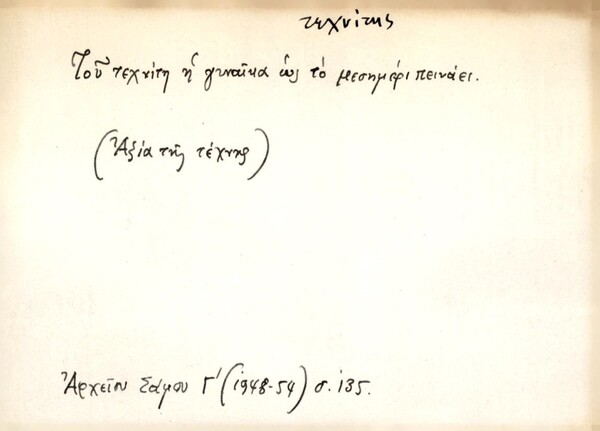 τεχνίτης
Τοῦ τεχνίτη ἡ γυναῖκα ὡς τὸ μεσημέρι πεινάει.
(Ἀξία τῆς τέχνης)
Ἀρχεῖον Σάμου Γ' (1948-54) σ. 135.